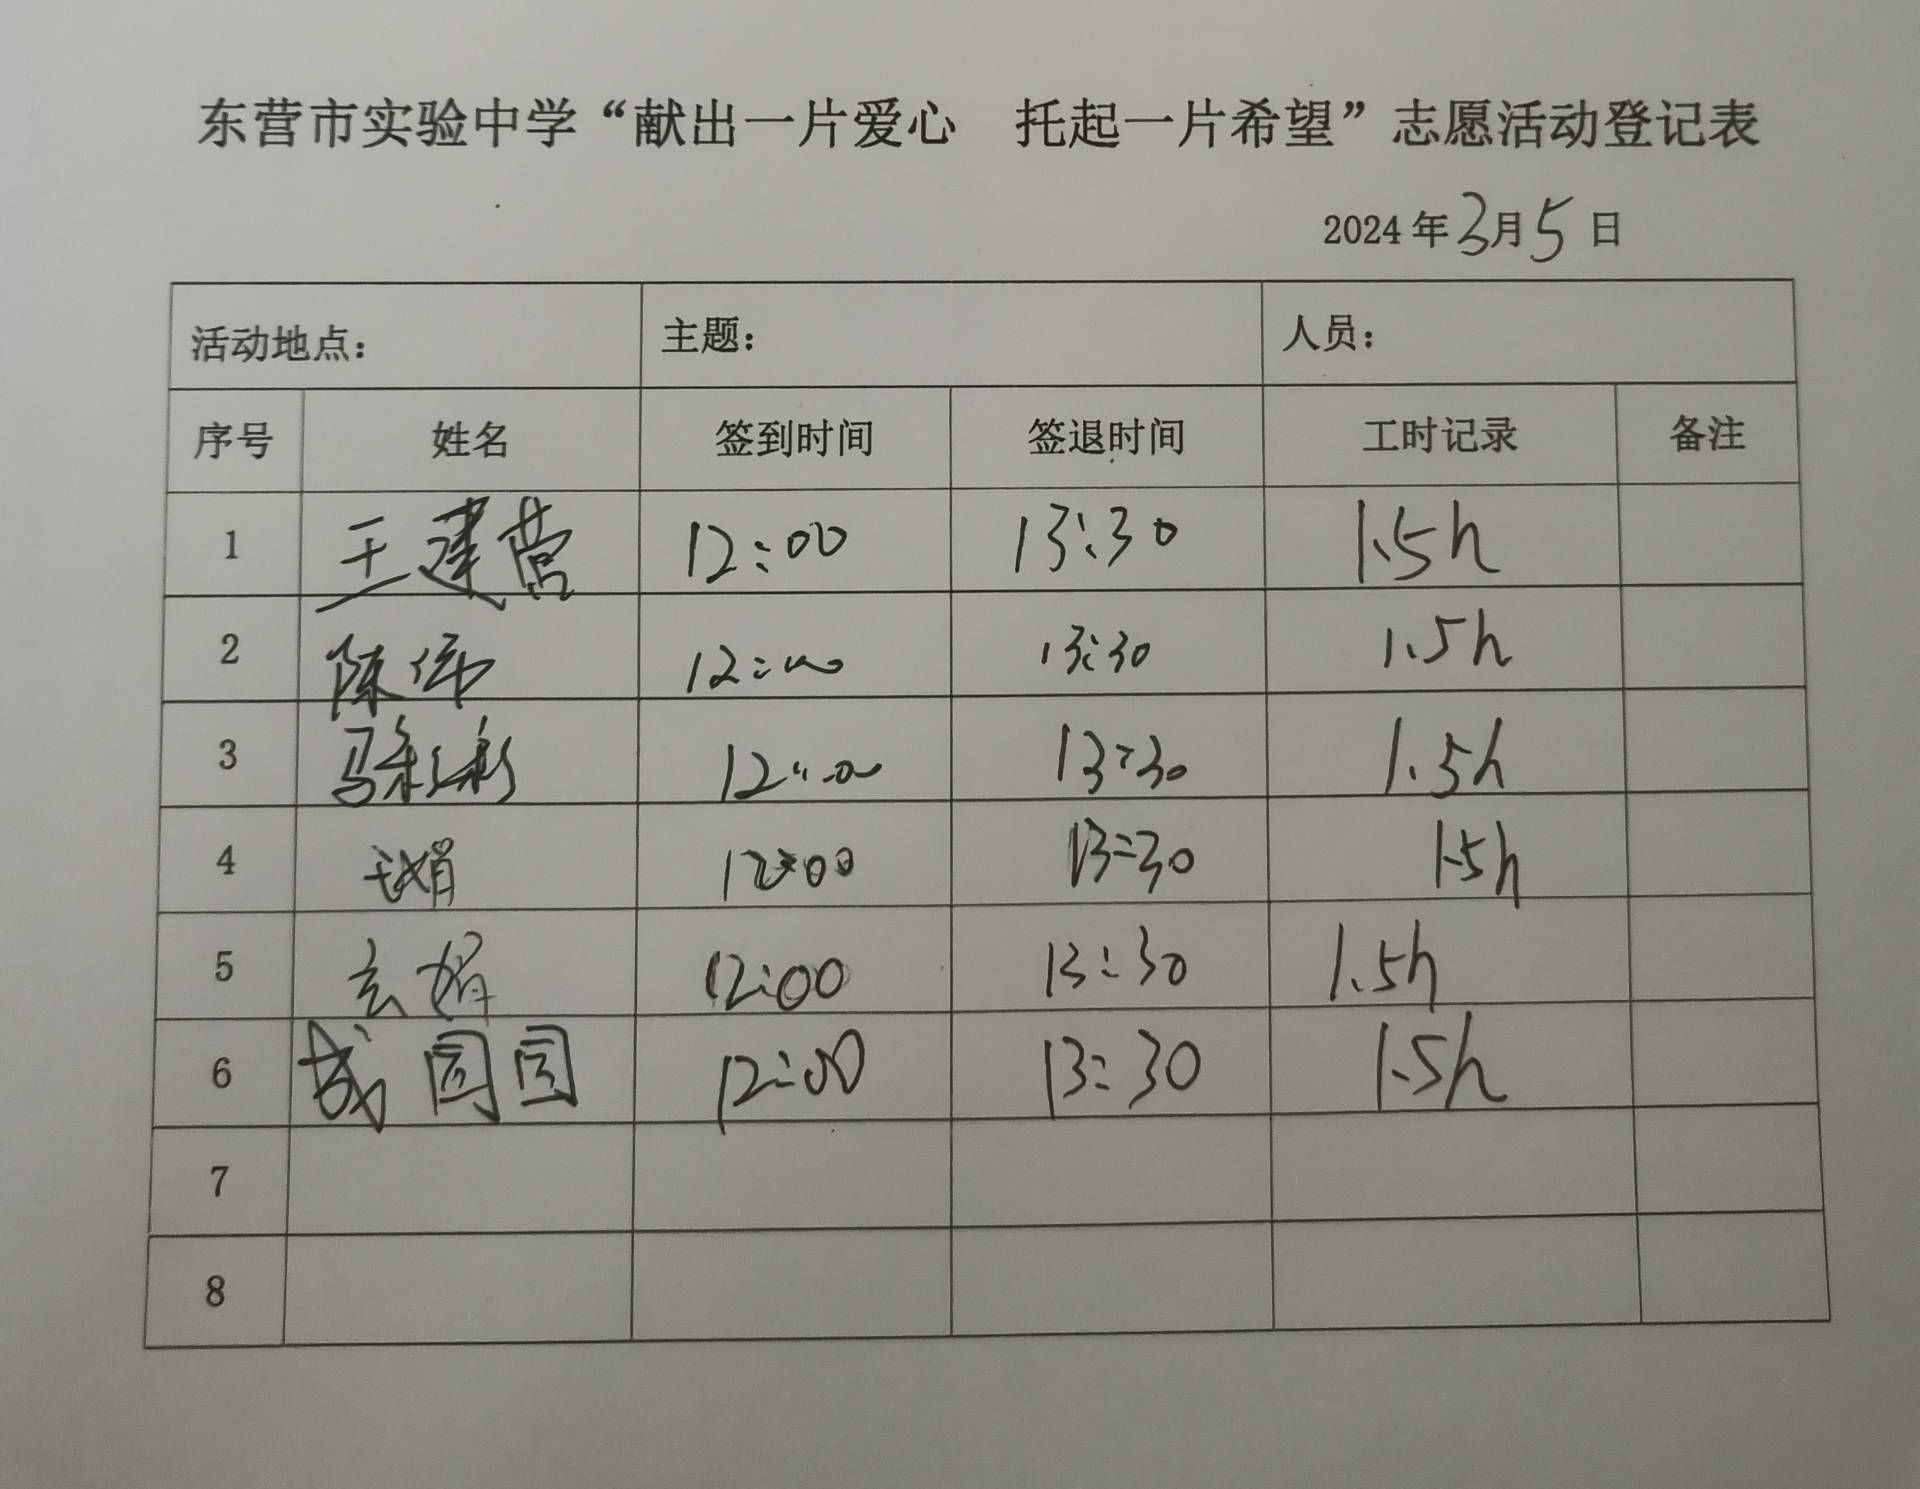 东营市实验中学“献出一片爱心 托起一片希望”志愿活动登记表
2024年3月5日
活动地点： 主题： 人员：
序号 姓名 签到时间 签退时间 工时记录 备注
1 王建营 12:00 13:30 1.5h
2 陈伟 12:00 13:30 1.5h
3 12:00 13:30 1.5h
4 12:00 13:30 1.5h
5 玄娟 12:00 13:30 1.5h
6 成圆圆 12:00 13:30 1.5h
7
8